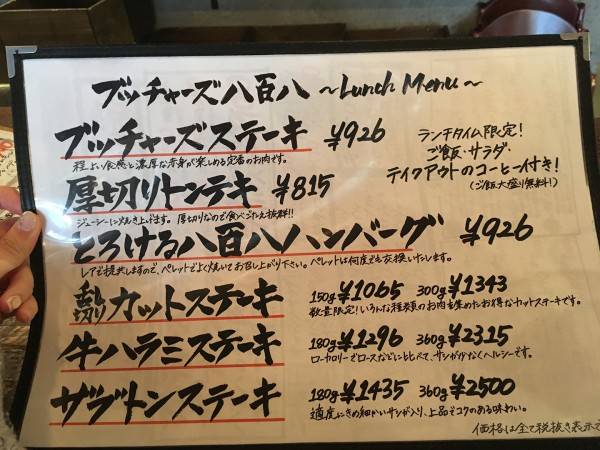 ブッチャーズ八百八 ~Lunch Menu~
ブッチャーズステーキ ¥926
程よい食感と濃厚な赤身が楽しめる定番のお肉です。
ランチタイム限定!
ご飯・サラダ
テイクアウトのコーヒー付き!
(ご飯大盛り無料!)
厚切りトンテキ ¥815
ジューシーに焼き上げます。厚切りなので食べごたえ抜群!!
とろける八百八ハンバーグ ¥926
レアで提供しますので、ペレットでよく焼いてお召し上がり下さい。ペレットは何度でも交換いたします。
乱切りカットステーキ 150g ¥1065 300g ¥1343
数量限定!いろんな種類のお肉を集めたお得なカットステーキです。
牛ハラミステーキ 180g ¥1296 360g ¥2315
ローカロリーでロースなどに比べて、サシが少なくヘルシーです。
ザブトンステーキ 180g ¥1435 360g ¥2500
適度にきめ細かいサシが入り、上品でコクのある味わい。
価格は全て税抜き表示で